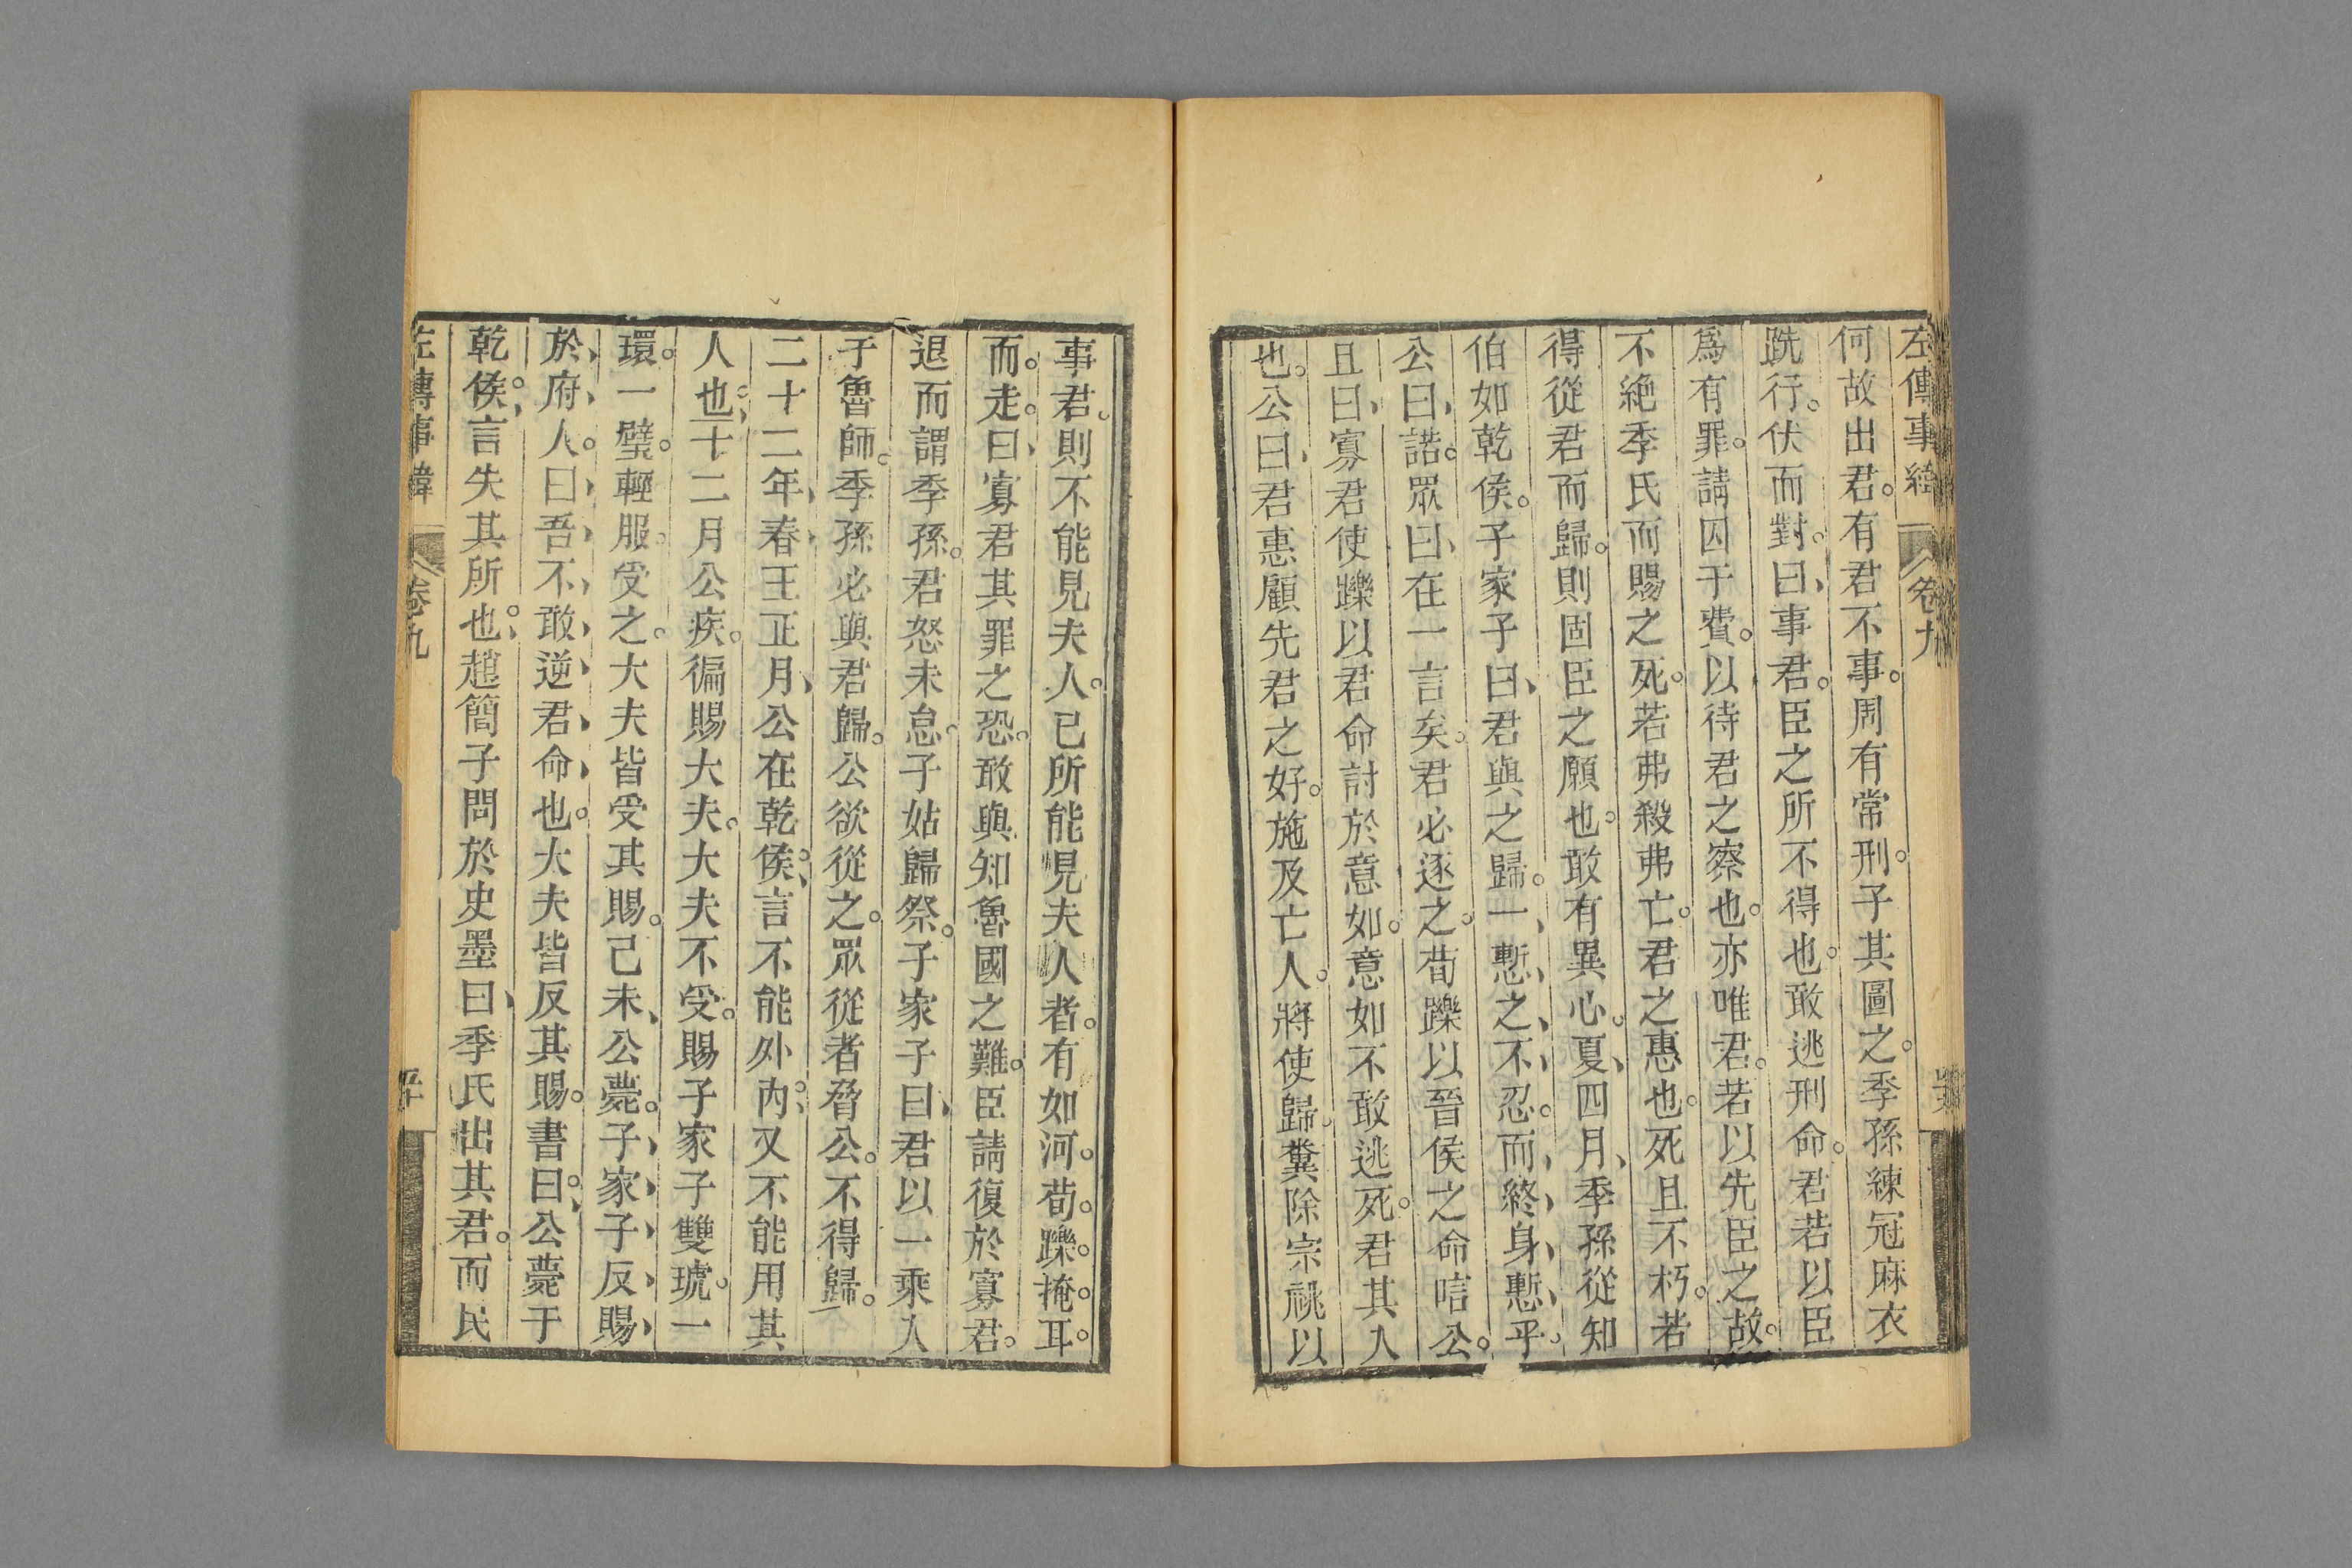 左傳事緯　卷九
何故出君。有君不事。周有常刑。子其圖之。季孫練冠麻衣
跣行。伏而對。曰、事君。臣之所不得也。敢逃刑命。君若以臣
爲有罪。請囚于費。以待君之察也。亦唯君。若以先臣之故。
不絶季氏而賜之死。若弗殺弗亡。君之惠也。死且不朽。若
得從君而歸。則固臣之願也。敢有異心。夏、四月、季孫從知
伯如乾侯。子家子曰、君與之歸。一、慙之、不、忍。而、終、身、慙、乎。
公曰、諾。眾曰、在一言矣。君必逐之。荀躒以晉侯之命唁公。
且曰、寡君使躒以君命討於意如。意如不敢逃死。君其入
也。公曰、君惠顧先君之好。施及亡人。將使歸。糞除宗祧以
事君。則不能見夫人。已所能見夫人者。有如河。荀。躒。掩。耳。
而。走。曰、寡君其罪之恐。敢與知魯國之難。臣請復於寡君。
退而謂季孫。君怒未怠。子姑歸祭。子家子曰、君以一乘入
于魯師。季孫必與君歸。公欲從之。眾從者脅公。不得歸。
二十二年、春王正月、公在乾侯。言不能外内。又不能用其
人也。十二月公疾。徧賜大夫。大夫不受。賜子家子雙琥。一
環。一璧。輕服。受之。大夫皆受其賜。己未、公薨。子、家、子、反、賜、
於、府、人。曰、吾、不、敢、逆、君、命、也。大夫皆反其賜。書曰。公薨于
乾侯。言失其所也。趙簡子問於史墨曰、季氏出其君。而民
左傳事緯　卷九